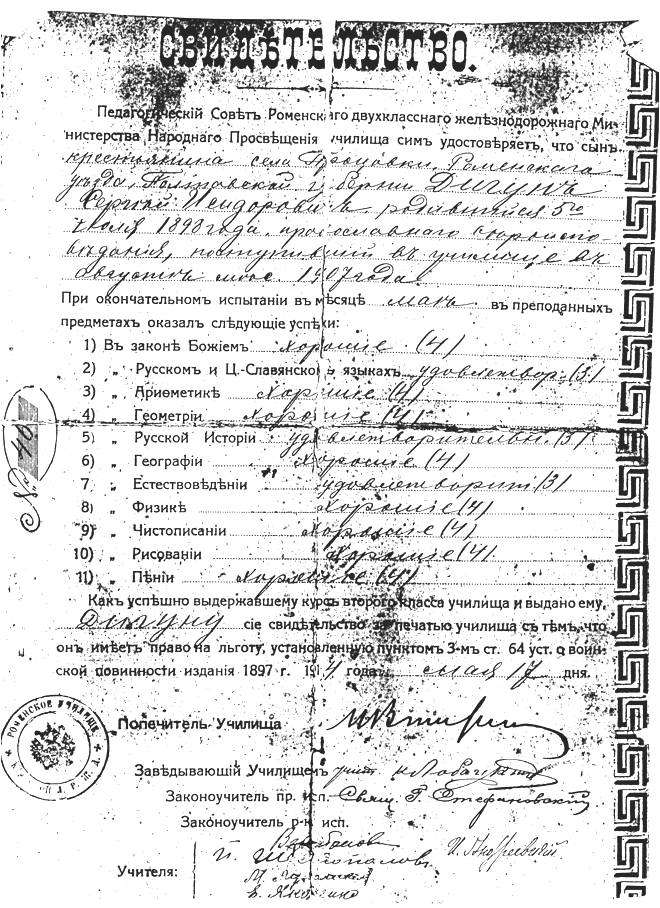 СВИДѢТЕЛЬСТВО.
Педагогическій Совѣтъ Роменскаго двухкласснаго желѣзнодорожнаго Ми-
нистерства Народнаго Просвѣщенія училища симъ удостовѣряетъ, что сынъ
крестьянина села Роменскаго
уѣзда, Полтавской губерніи Дигунъ
Сергѣй Исидоровичъ, родившійся 5го
1890 года, православнаго вѣроиспо-
вѣданія, поступившій въ училище въ
августѣ мѣс. 1907 года.
При окончательномъ испытаніи въ мѣсяцѣ маѣ въ преподанныхъ
предметахъ оказалъ слѣдующіе успѣхи:
1) Въ законѣ Божіемъ хорошіе (4)
2) „ Русскомъ и Ц.-Славянскомъ языкахъ удовлетвор. (3)
3) „ Ариѳметикѣ хорошіе (4)
4) „ Геометріи хорошіе (4)
5) „ Русской Исторіи удовлетворительн. (3)
6) „ Географіи хорошіе (4)
7) „ Естествовѣдѣніи удовлетворит. (3)
8) „ Физикѣ хорошіе (4)
9) „ Чистописаніи хорошіе (4)
10) „ Рисованіи хорошіе (4)
11) „ Пѣніи хорошіе (4)
№ 40
Какъ успѣшно выдержавшему курсъ второго класса училища и выдано ему,
Дигуну сіе свидѣтельство за печатью училища съ тѣмъ, что
онъ имѣетъ право на льготу, установленную пунктомъ 3-мъ ст. 64 уст. о воин-
ской повинности изданія 1897 г. 191 года мая 17 дня.
РОМЕНСКОЕ УЧИЛИЩЕ
Попечитель Училища
Завѣдывающій Училищемъ
Законоучитель пр. исп. Свящ. Г. Стефановскій
Законоучитель р-к. исп.
Учителя: